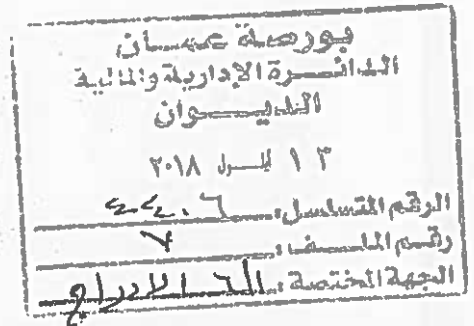 بورصة عمان
الدائرة الإدارية والمالية
الديوان
١٣ أيلول ٢٠١٨
الرقم المتسلسل:
رقم الملف: ٧
الجهة المختصة: الإدراج